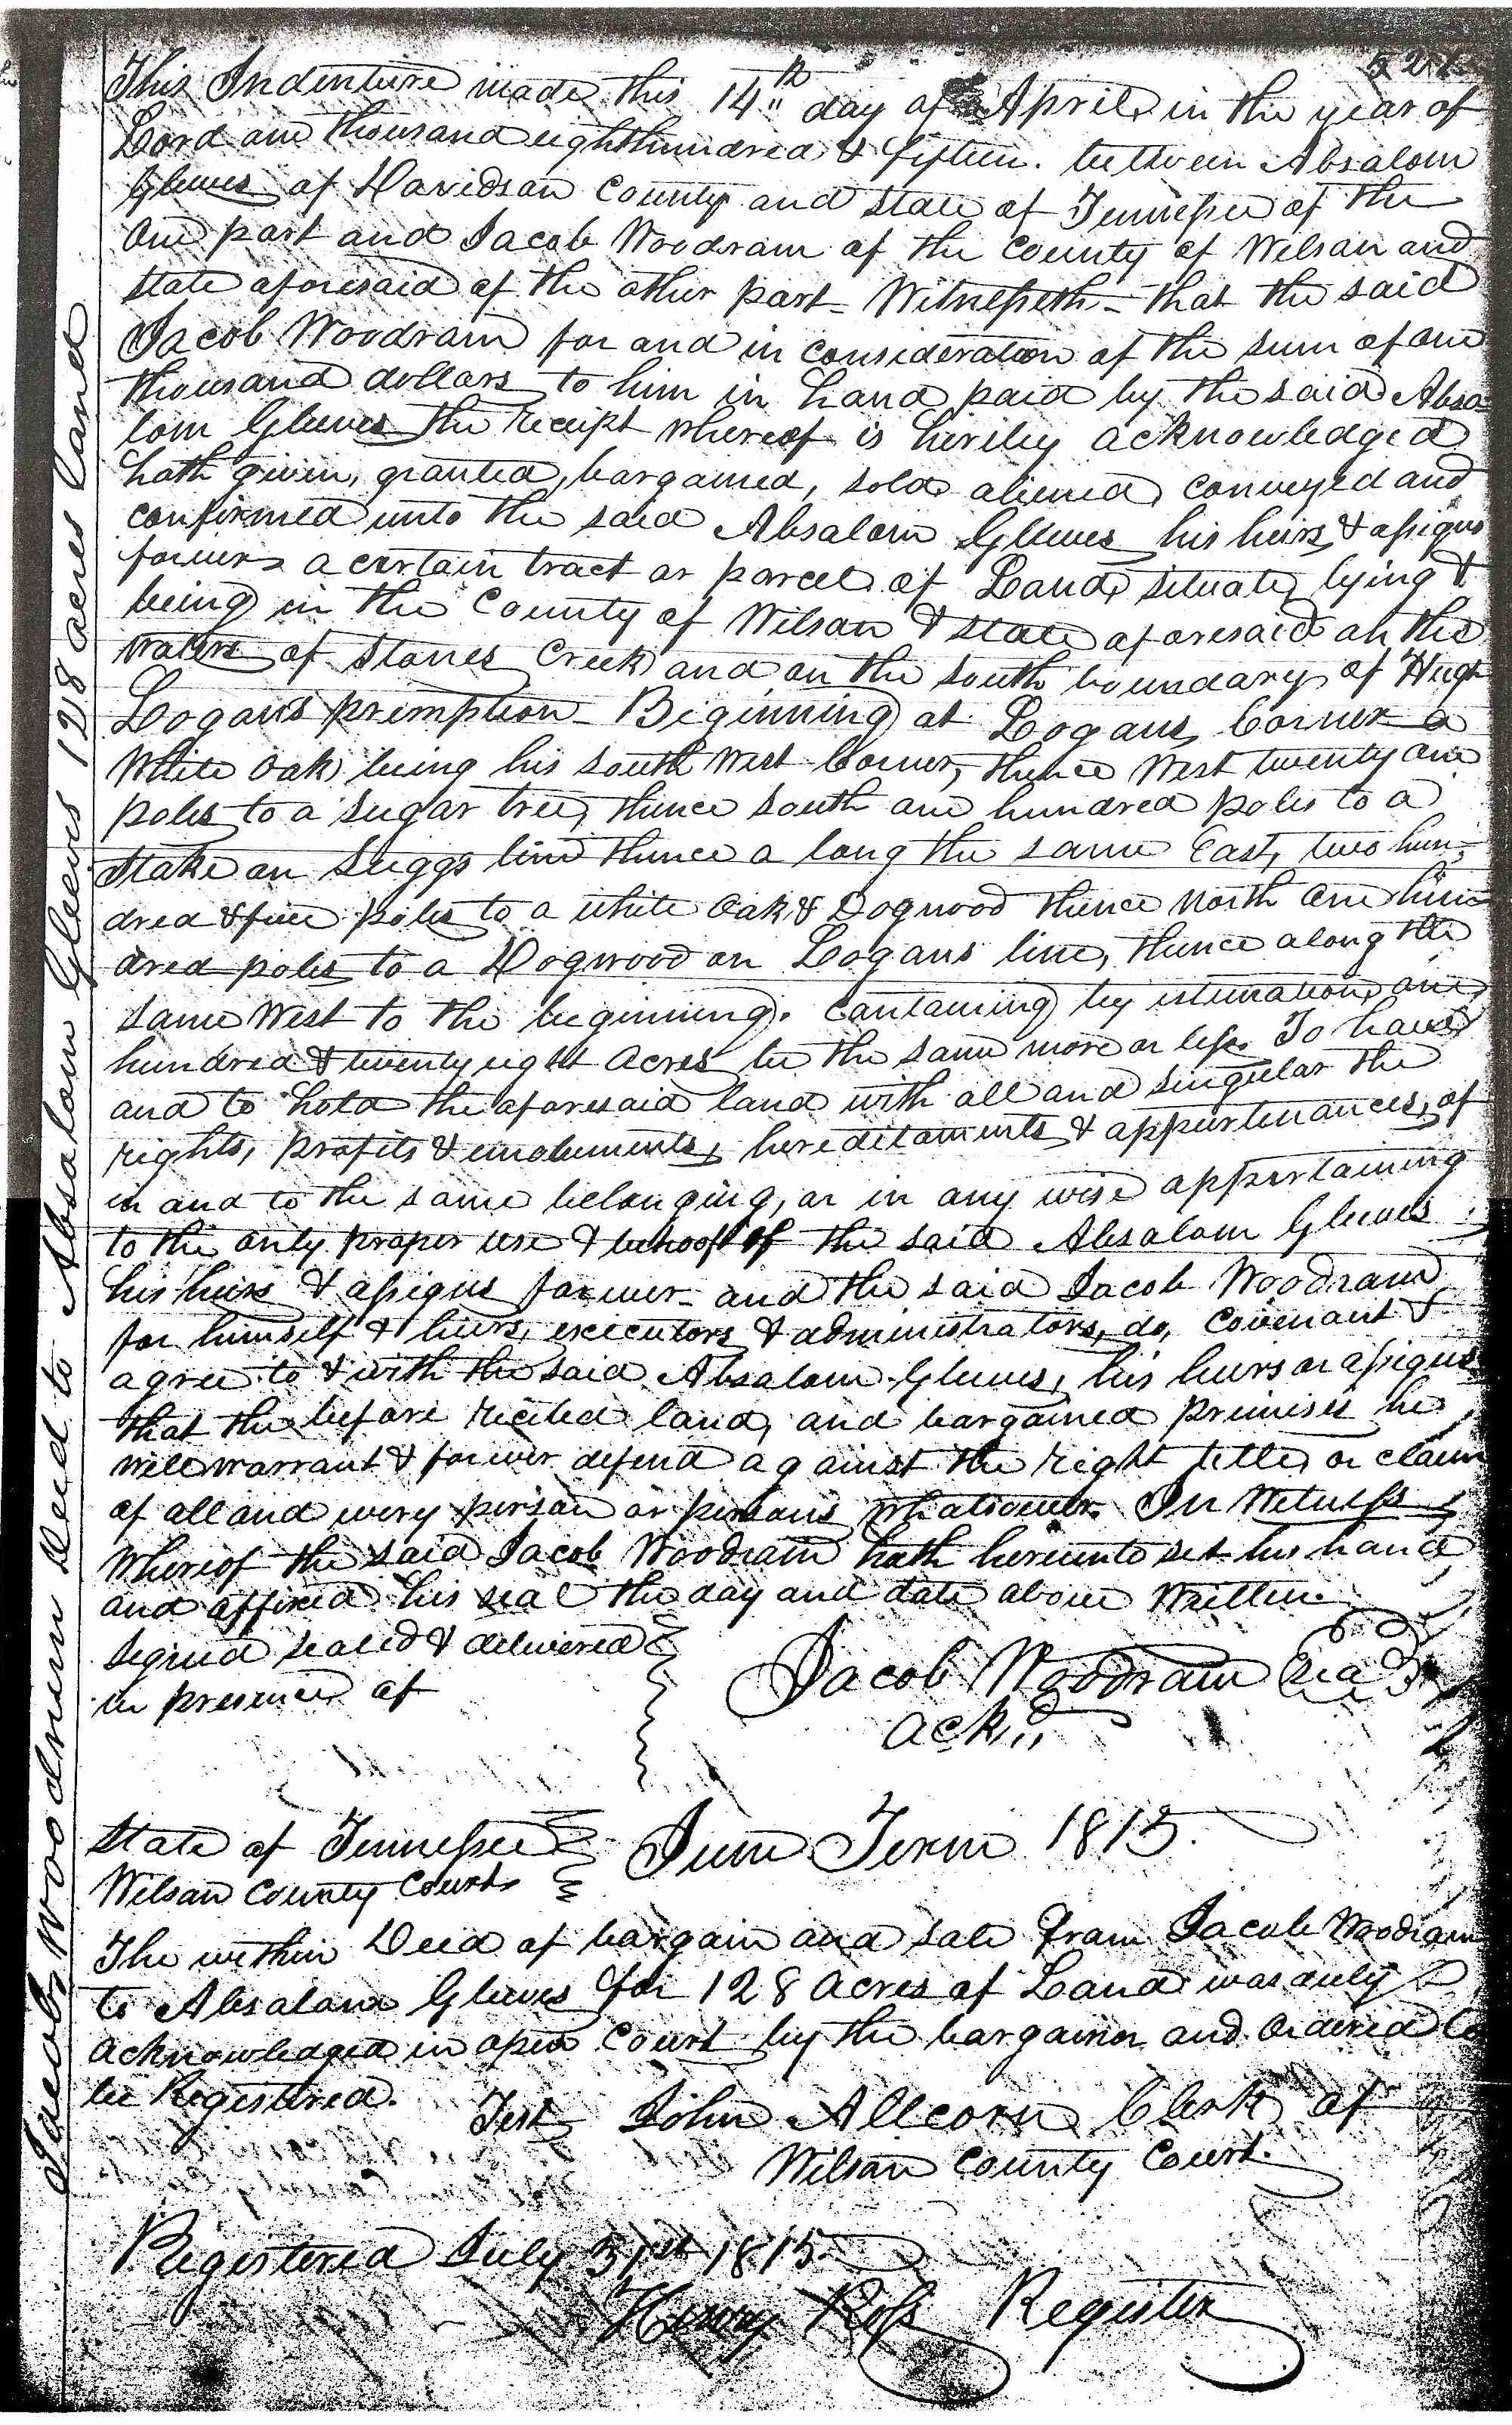 This Indenture made this 14th day of April in the year of
Lord one thousand eighthundred & fifteen. between Absalom
Gleeves of Davidson County and state of Tennessee of the
One part and Jacob Woodram of the County of Wilson and
state aforesaid of the other part - Witnesseth - that the said
Jacob Woodram for and in consideration of the sum of one
thousand dollars to him in hand paid by the said Absa=
lom Gleeves the receipt whereof is hereby acknowledged
hath given, granted, bargained, sold aliened conveyed and
confirmed unto the said Absalom Gleeves his heirs & assigns
forever a certain tract or parcel of Land situate lying &
being in the County of Wilson & state aforesaid on the
waters of Stones Creek and on the south boundary of Hugh
Logans primption - Beginning at Logans Corner a
White Oak being his south West Corner, thence West twenty one
poles to a sugar tree, thence south one hundred poles to a
Stake on Suggs line thence a long the same East, two hun-
dred & five poles to a white Oak & Dogwood thence North One hun-
dred poles to a Dogwood on Logans line, thence along the
same West to the beginning. Containing by estimation one
hundred & twenty eight Acres be the same more or less. To have
and to hold the aforesaid land with all and singular the
rights, profits & emoluments, hereditaments & appurtenances, of
in and to the same belonging, or in any wise appertaining
to the only proper use & behoof of the said Absalom Gleeves
his heirs & assigns forever - and the said Jacob Woodram
for himself & heirs, executors & administrators, do, Covenant &
agree to & with the said Absalom Gleeves, his heirs or assigns
that the before recited land, and bargained premises he
will warrant & forever defend against the right title or claim
of all and every person or persons whatsoever. In Witness
Whereof the said Jacob Woodram hath hereunto set his hand
and affixed his seal the day and date above Written.
Signed sealed & delivered
in presence of
Jacob Woodram Seal
Ackd
State of Tennessee
Wilson County Court
June Term 1815.
The within Deed of bargain and sale from Jacob Woodram
to Absalom Gleeves for 128 Acres of Land was duly
acknowledged in open Court by the bargainor and Ordered to
be Registered.
Test John Allcorn Clerk of
Wilson County Court.
Registered July 31st 1815.
Henry Ross Register
Jacob Woodrum Deed to Absalom Gleeves 128 acres Land